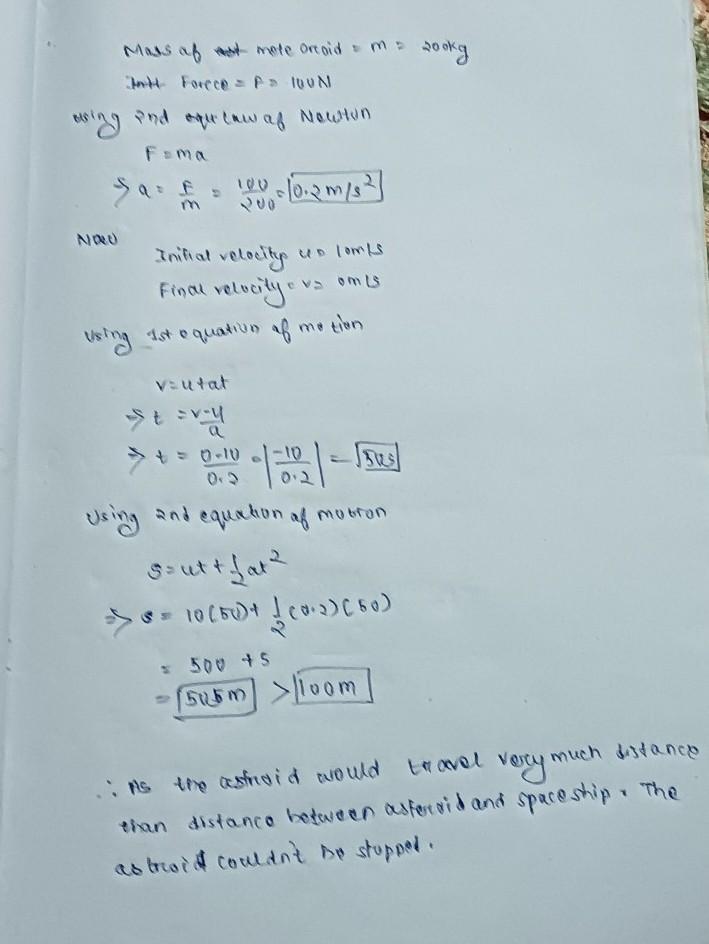 Mass of meteoroid = m = 200kg
Force = F = 100N
Using 2nd law of Newton
F = ma
⇒ a = F/m = 100/200 = 0.2 m/s²
Now
Initial velocity u = 10m/s
Final velocity = v = 0m/s
Using 1st equation of motion
v = u + at
⇒ t = v-u/a
⇒ t = 0-10/0.2 = |-10/0.2| = 50s
Using 2nd equation of motion
s = ut + 1/2 at²
⇒ s = 10(50) + 1/2 (0.2)(50)
= 500 + 5
= 505m > 100m
∴ As the astroid would travel very much distance
than distance between asteroid and spaceship. The
astroid couldn't be stopped.